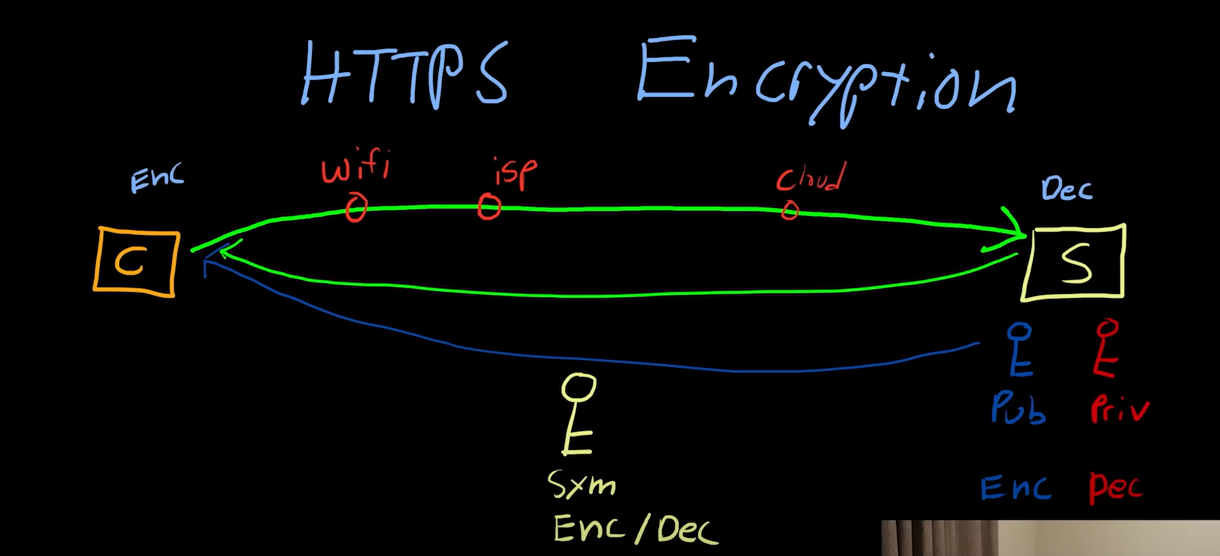 HTTPS Encryption
wifi isp cloud
Enc Dec
C S
Pub Priv
Sym
Enc Dec
Enc/Dec